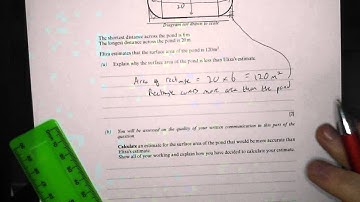 20
Diagram not drawn to scale
The shortest distance across the pond is 6 m
The longest distance across the pond is 20 m
Eliza estimates that the surface area of the pond is 120m²
(a) Explain why the surface area of the pond is less than Eliza's estimate.
Area of rectangle = 20 x 6 = 120m²
Rectangle covers more area than the pond
[2]
(b) You will be assessed on the quality of your written communication in this part of the
question
Calculate an estimate for the surface area of the pond that would be more accurate than
Eliza's estimate
Show all of your working and explain how you have decided to calculate your estimate.